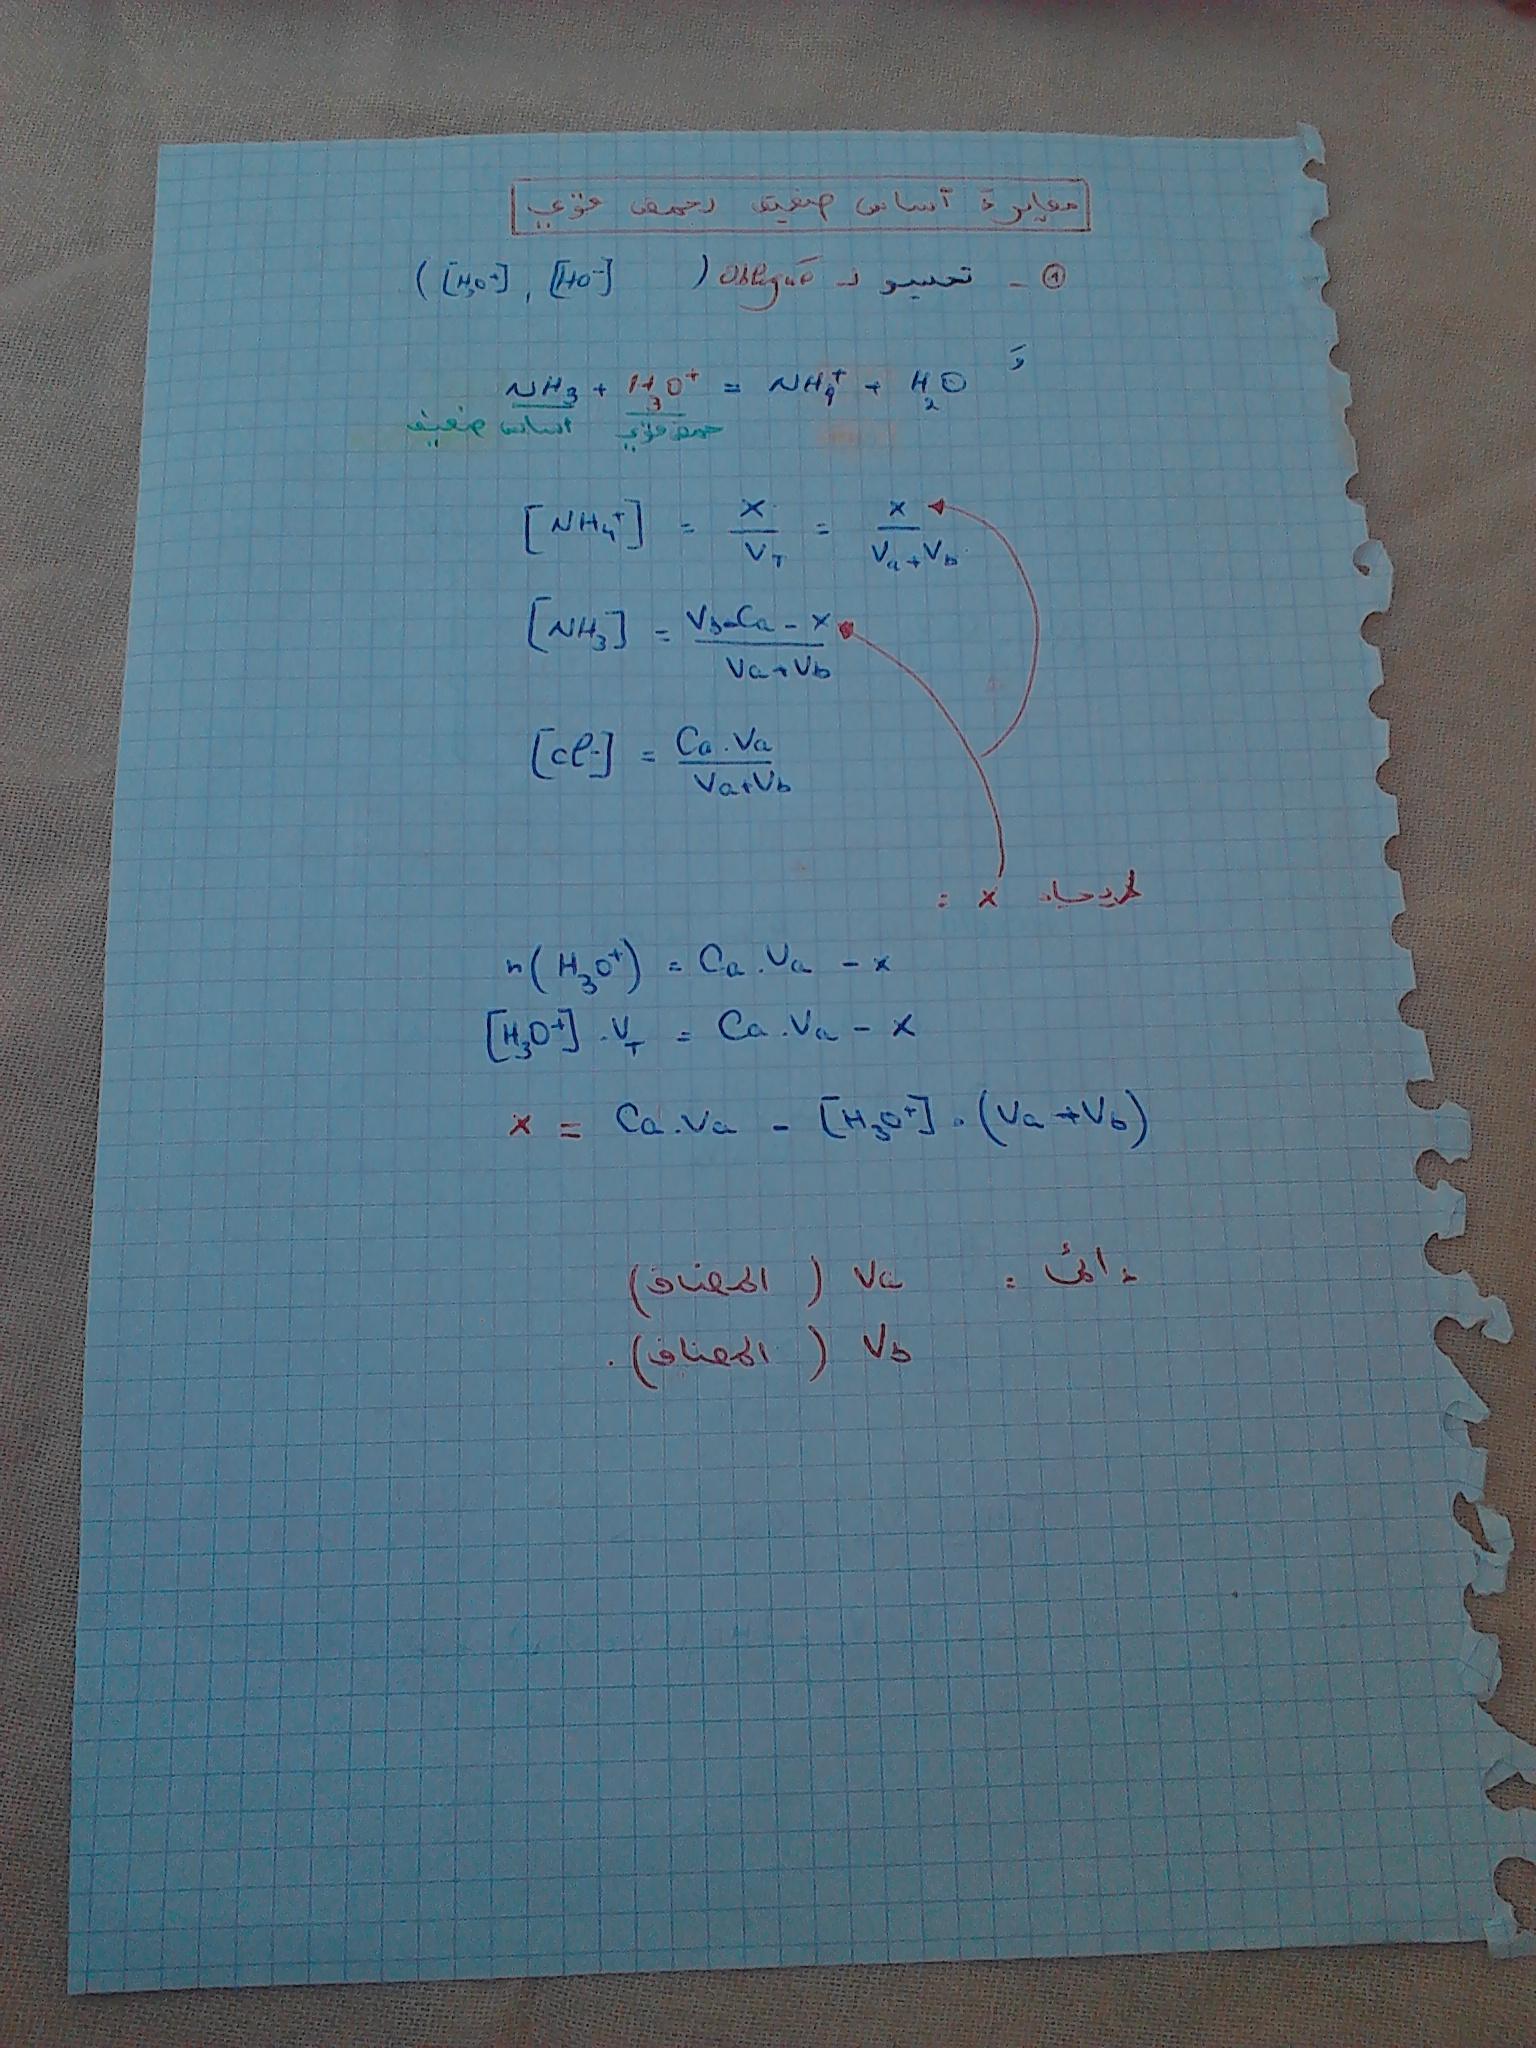 معايرة أساس ضعيف بحمض قوي
① - تحسبو لـ Obligué ([H₃O⁺] , [HO⁻])
و NH₃ + H₃O⁺ = NH₄⁺ + H₂O
أساس ضعيف حمض قوي
[NH₄⁺] = x / V_T = x / (Va + Vb)
[NH₃] = (Vb·Ca - x) / (Va + Vb)
[Cl⁻] = (Ca . Va) / (Va + Vb)
x :
n(H₃O⁺) = Ca . Va - x
[H₃O⁺] . V_T = Ca . Va - x
x = Ca . Va - [H₃O⁺] . (Va + Vb)
Va (المضاف)
Vb (المضاف) .